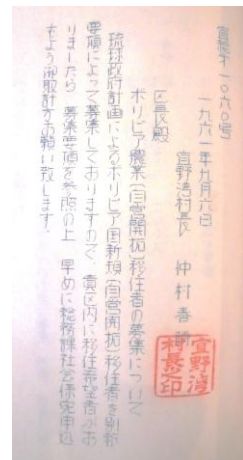 宜総才一〇六〇号
一九六一年九月六日
宜野湾村長 仲村春勝
宜野湾
村長之印
区長殿
ボリビア農業(自営開拓)移住者の募集について
琉球政府計画によるボリビア国新規(自営開拓)移住者を別紙
要領によって募集しておりますので、貴区内に移住希望者がお
りましたら 募集要領を参照の上 早めに総務課社会係宛申込
むよう御取計方お願い致します。